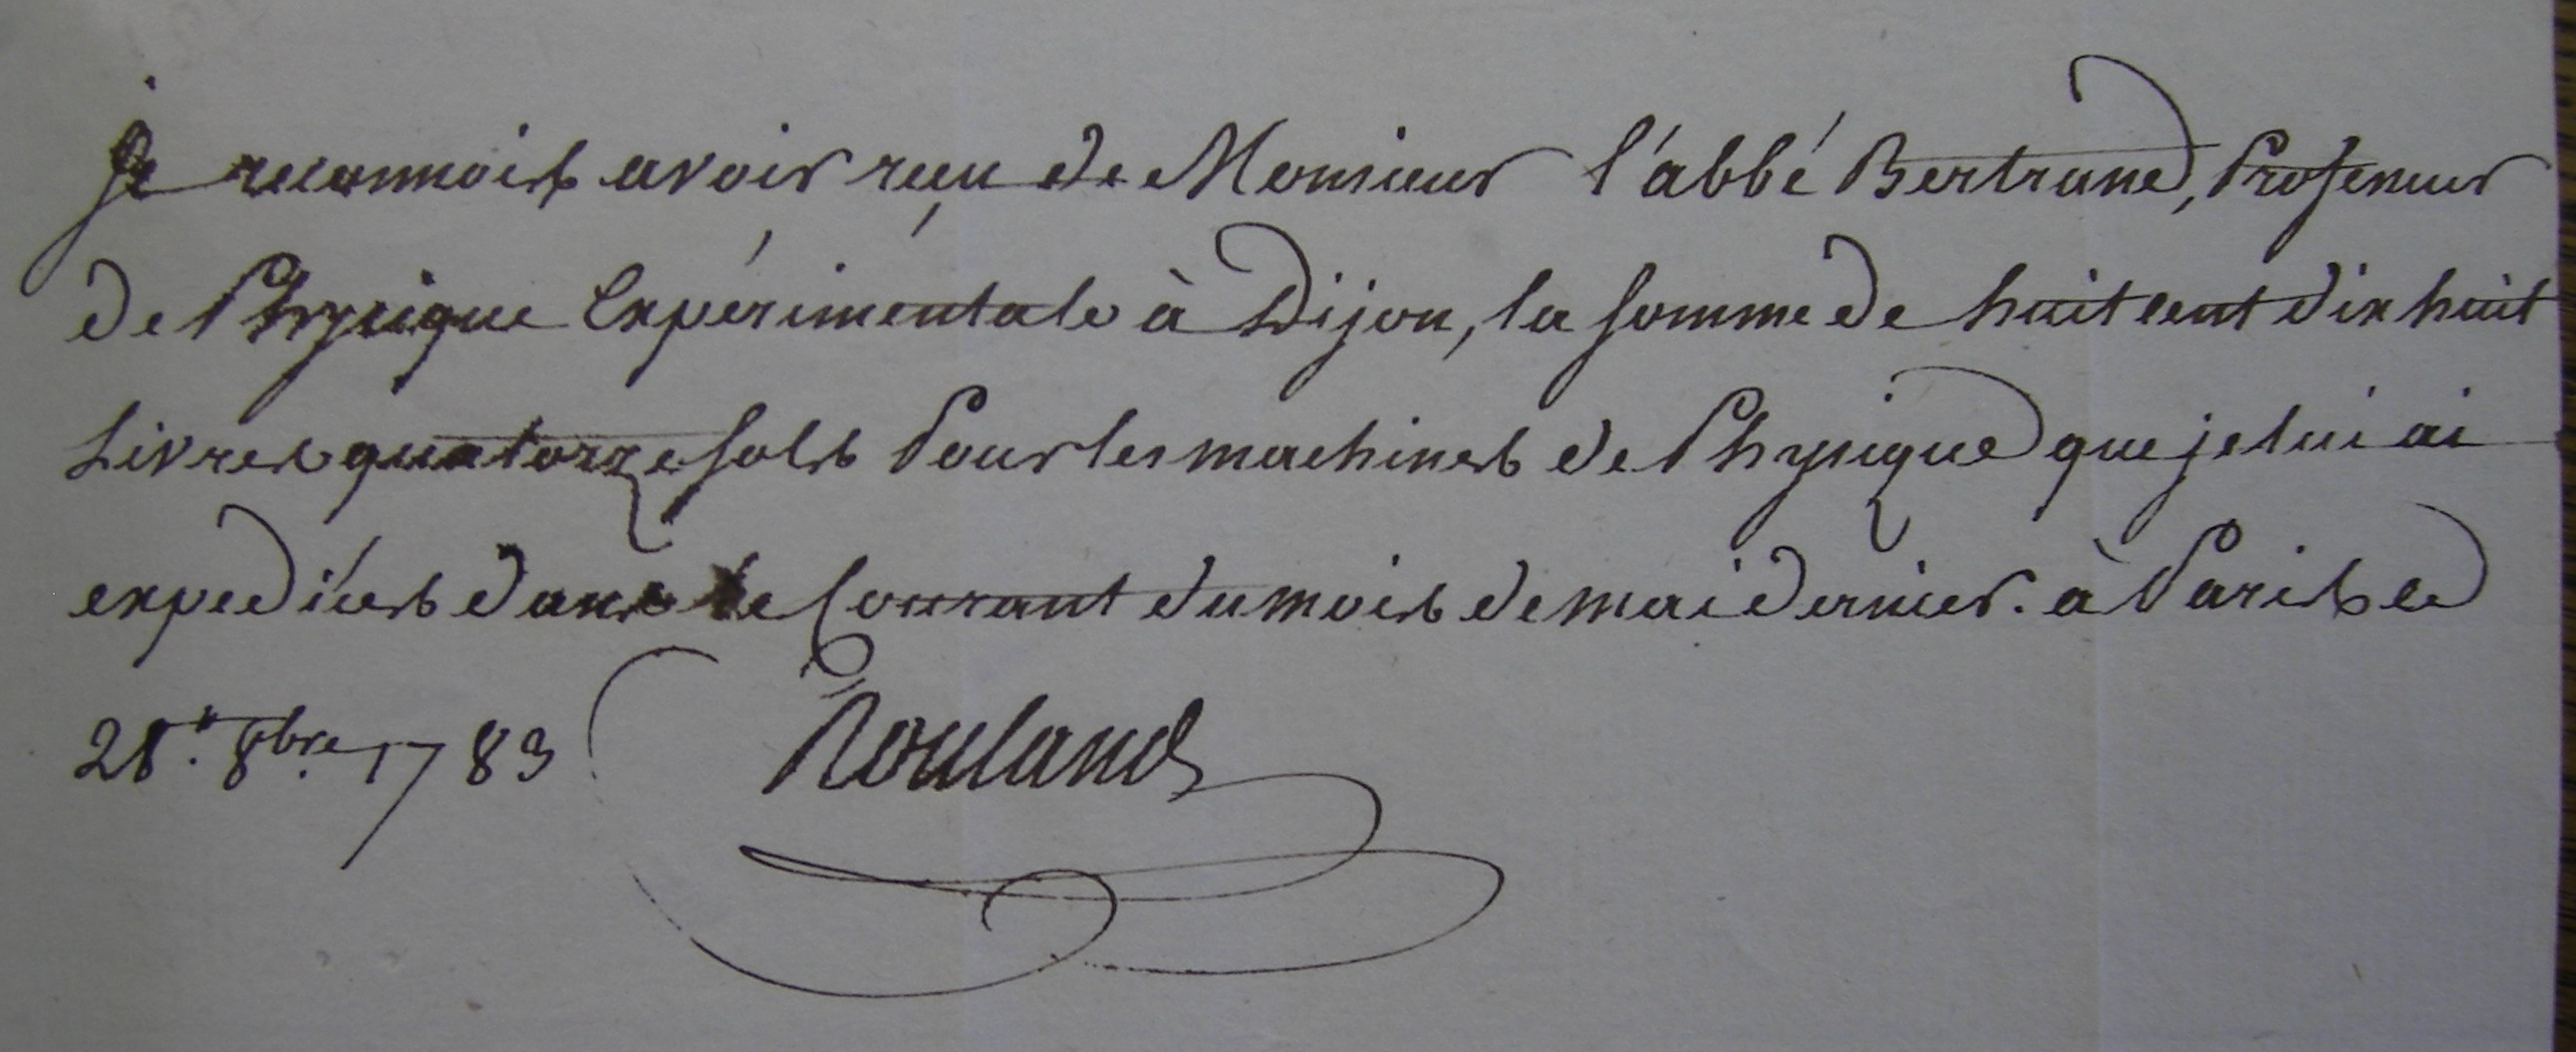 Je reconnois avoir reçu de Monsieur l'abbé Bertrand, Professeur
de Physique Expérimentale à Dijon, la somme de huit cent dix huit
Livres quatorze sols Pour les machines de Physique que je lui ai
expediées dans le Courant du mois de mai dernier. à Paris le
28. 8bre. 1783 Rouland